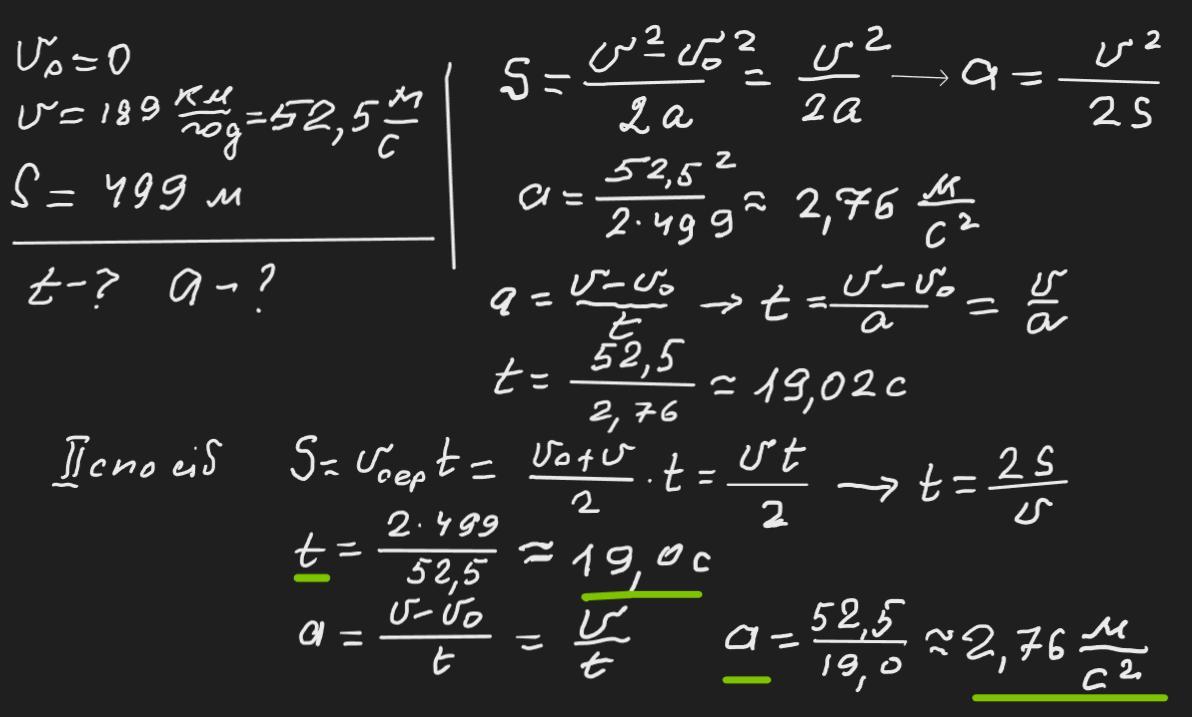 v₀ = 0
v = 189 км/год = 52,5 м/с
S = 499 м
t - ? a - ?
S = (v² - v₀²)/(2a) = v²/(2a) → a = v²/(2S)
a = 52,5²/(2·499) ≈ 2,76 м/с²
a = (v - v₀)/t → t = (v - v₀)/a = v/a
t = 52,5/2,76 ≈ 19,02 с
II спосіб S = v_сер t = (v₀ + v)/2 · t = vt/2 → t = 2S/v
t = (2·499)/52,5 ≈ 19,0 с
a = (v - v₀)/t = v/t a = 52,5/19,0 ≈ 2,76 м/с²